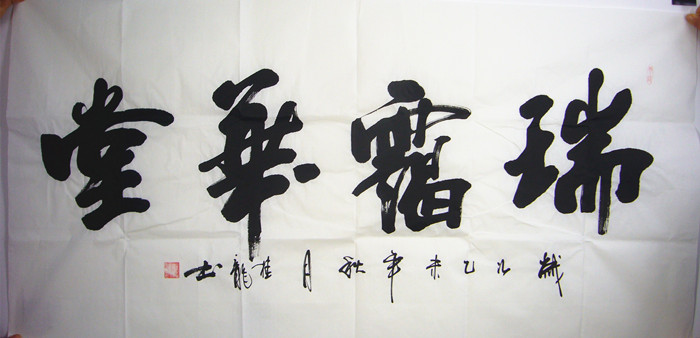 瑞靄華堂
歲次乙未年秋月桂龍书